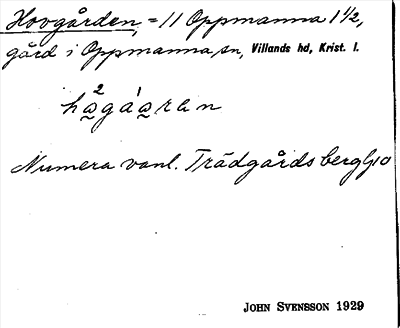 Hovgården, = 11 Oppmanna 1 1/2,
gård i Oppmanna sn, Villands hd, Krist. l.
ha²gá¹aran
Numera vanl. Trädgårdsberg
JOHN SVENSSON 1929